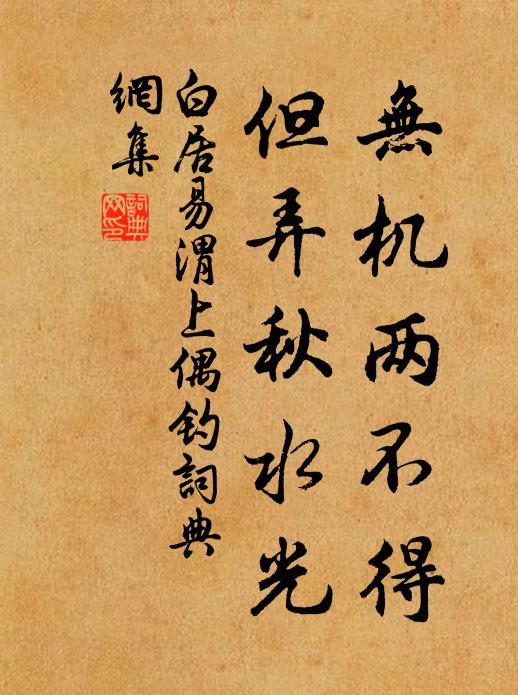 無机两不得
但弄秋水光
白居易渭上偶钓詞典
網集
詞典
网印